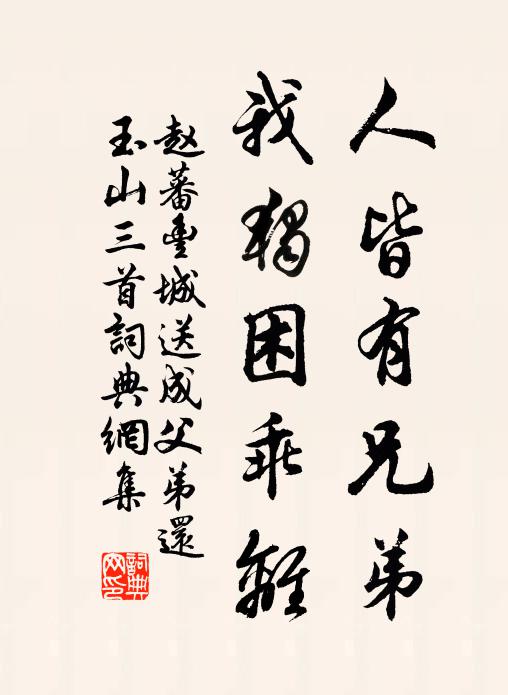 人皆有兄弟
我獨困乖離
赵蕃豊城送成父弟還
玉山三首詞典網集
詞典
网印